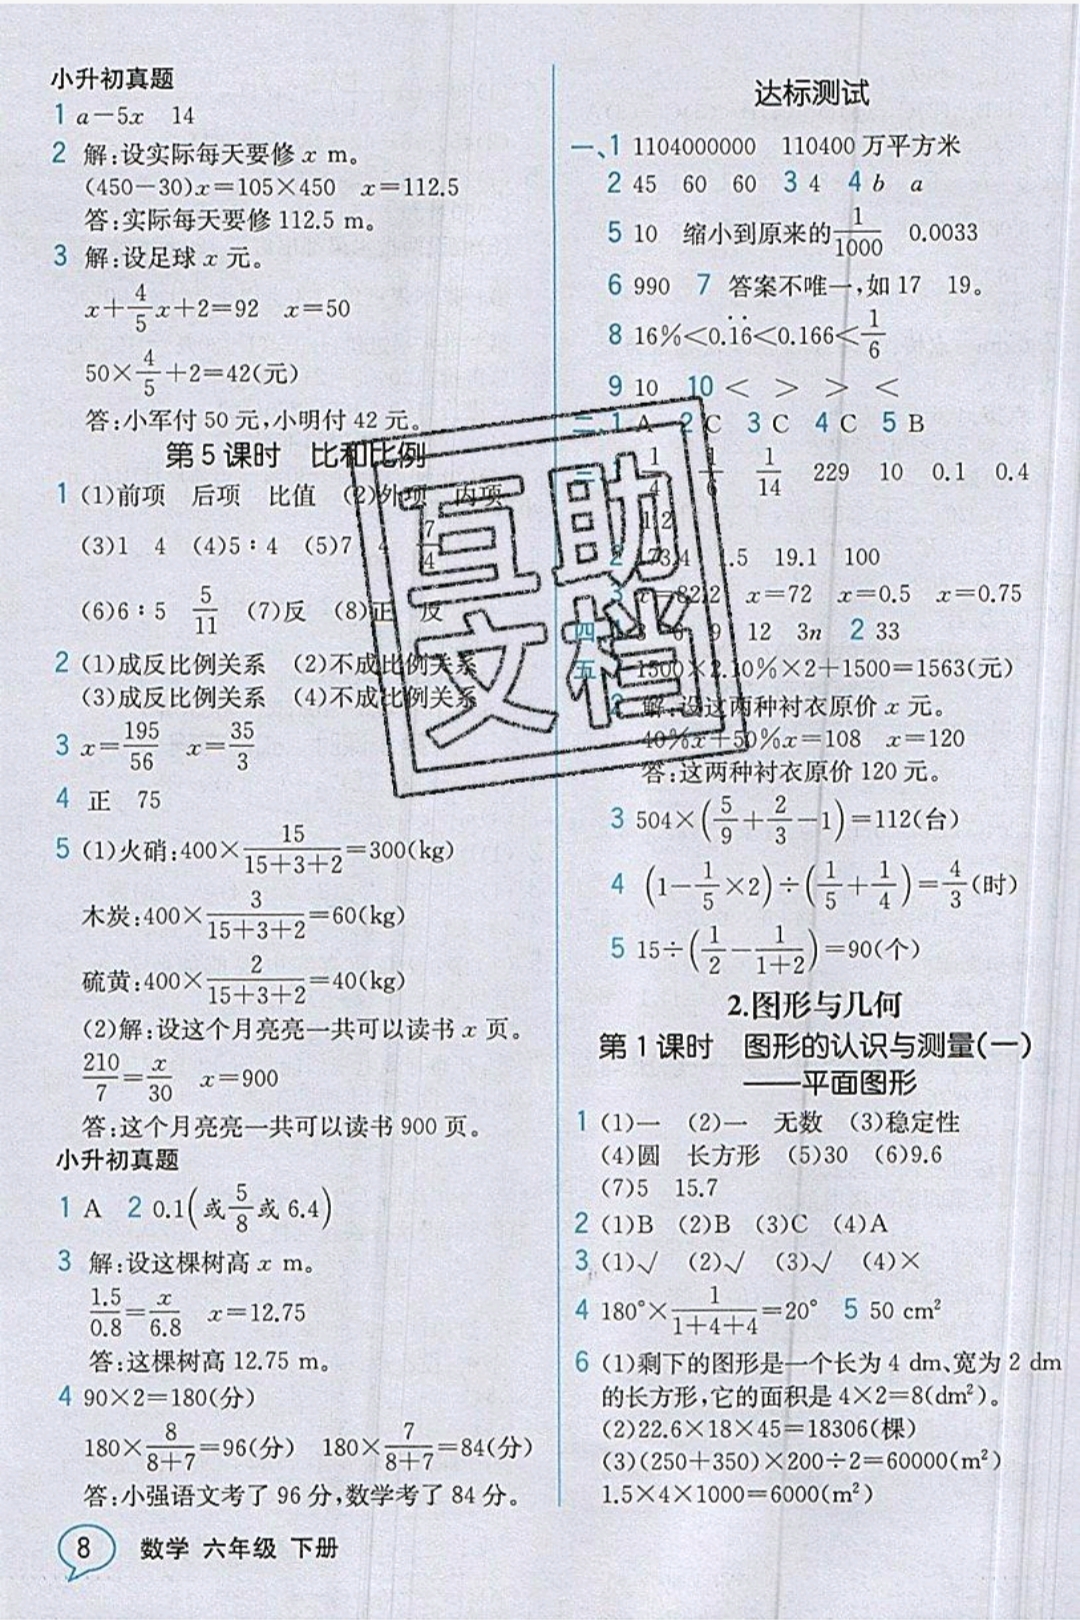 小升初真题
1 a-5x 14
2 解:设实际每天要修 x m。
(450-30)x=105×450 x=112.5
答:实际每天要修 112.5 m。
3 解:设足球 x 元。
x+4/5x+2=92 x=50
50×4/5+2=42(元)
答:小军付 50 元,小明付 42 元。
第 5 课时 比和比例
1 (1)前项 后项 比值 (2)外项 内项
(3)1 4 (4)5∶4 (5)7 4 7/4
(6)6∶5 5/11 (7)反 (8)正 反
2 (1)成反比例关系 (2)不成比例关系
(3)成反比例关系 (4)不成比例关系
3 x=195/56 x=35/3
4 正 75
5 (1)火硝:400×15/(15+3+2)=300(kg)
木炭:400×3/(15+3+2)=60(kg)
硫黄:400×2/(15+3+2)=40(kg)
(2)解:设这个月亮亮一共可以读书 x 页。
210/7=x/30 x=900
答:这个月亮亮一共可以读书 900 页。
小升初真题
1 A 2 0.1(或5/8或 6.4)
3 解:设这棵树高 x m。
1.5/0.8=x/6.8 x=12.75
答:这棵树高 12.75 m。
4 90×2=180(分)
180×8/(8+7)=96(分) 180×7/(8+7)=84(分)
答:小强语文考了 96 分,数学考了 84 分。
8 数学 六年级 下册
达标测试
一、1 1104000000 110400 万平方米
2 45 60 60 3 4 4 b a
5 10 缩小到原来的1/1000 0.0033
6 990 7 答案不唯一,如 17 19。
8 16%<0.1̇6̇<0.166<1/6
9 10 10 < > > <
二、1 A 2 C 3 C 4 C 5 B
1/4 1/6 1/14 229 10 0.1 0.4
1.2
2 73.4 1.5 19.1 100
3 x=82.2 x=72 x=0.5 x=0.75
四、 6 9 12 3n 2 33
五、 1500×2.10%×2+1500=1563(元)
2 解:设这两种衬衣原价 x 元。
40%x+50%x=108 x=120
答:这两种衬衣原价 120 元。
3 504×(5/9+2/3-1)=112(台)
4 (1-1/5×2)÷(1/5+1/4)=4/3(时)
5 15÷(1/2-1/(1+2))=90(个)
2.图形与几何
第 1 课时 图形的认识与测量(一)
——平面图形
1 (1)一 (2)一 无数 (3)稳定性
(4)圆 长方形 (5)30 (6)9.6
(7)5 15.7
2 (1)B (2)B (3)C (4)A
3 (1)√ (2)√ (3)√ (4)×
4 180°×1/(1+4+4)=20° 5 50 cm²
6 (1)剩下的图形是一个长为 4 dm、宽为 2 dm
的长方形,它的面积是 4×2=8(dm²)。
(2)22.6×18×45=18306(棵)
(3)(250+350)×200÷2=60000(m²)
1.5×4×1000=6000(m²)
互助
文档